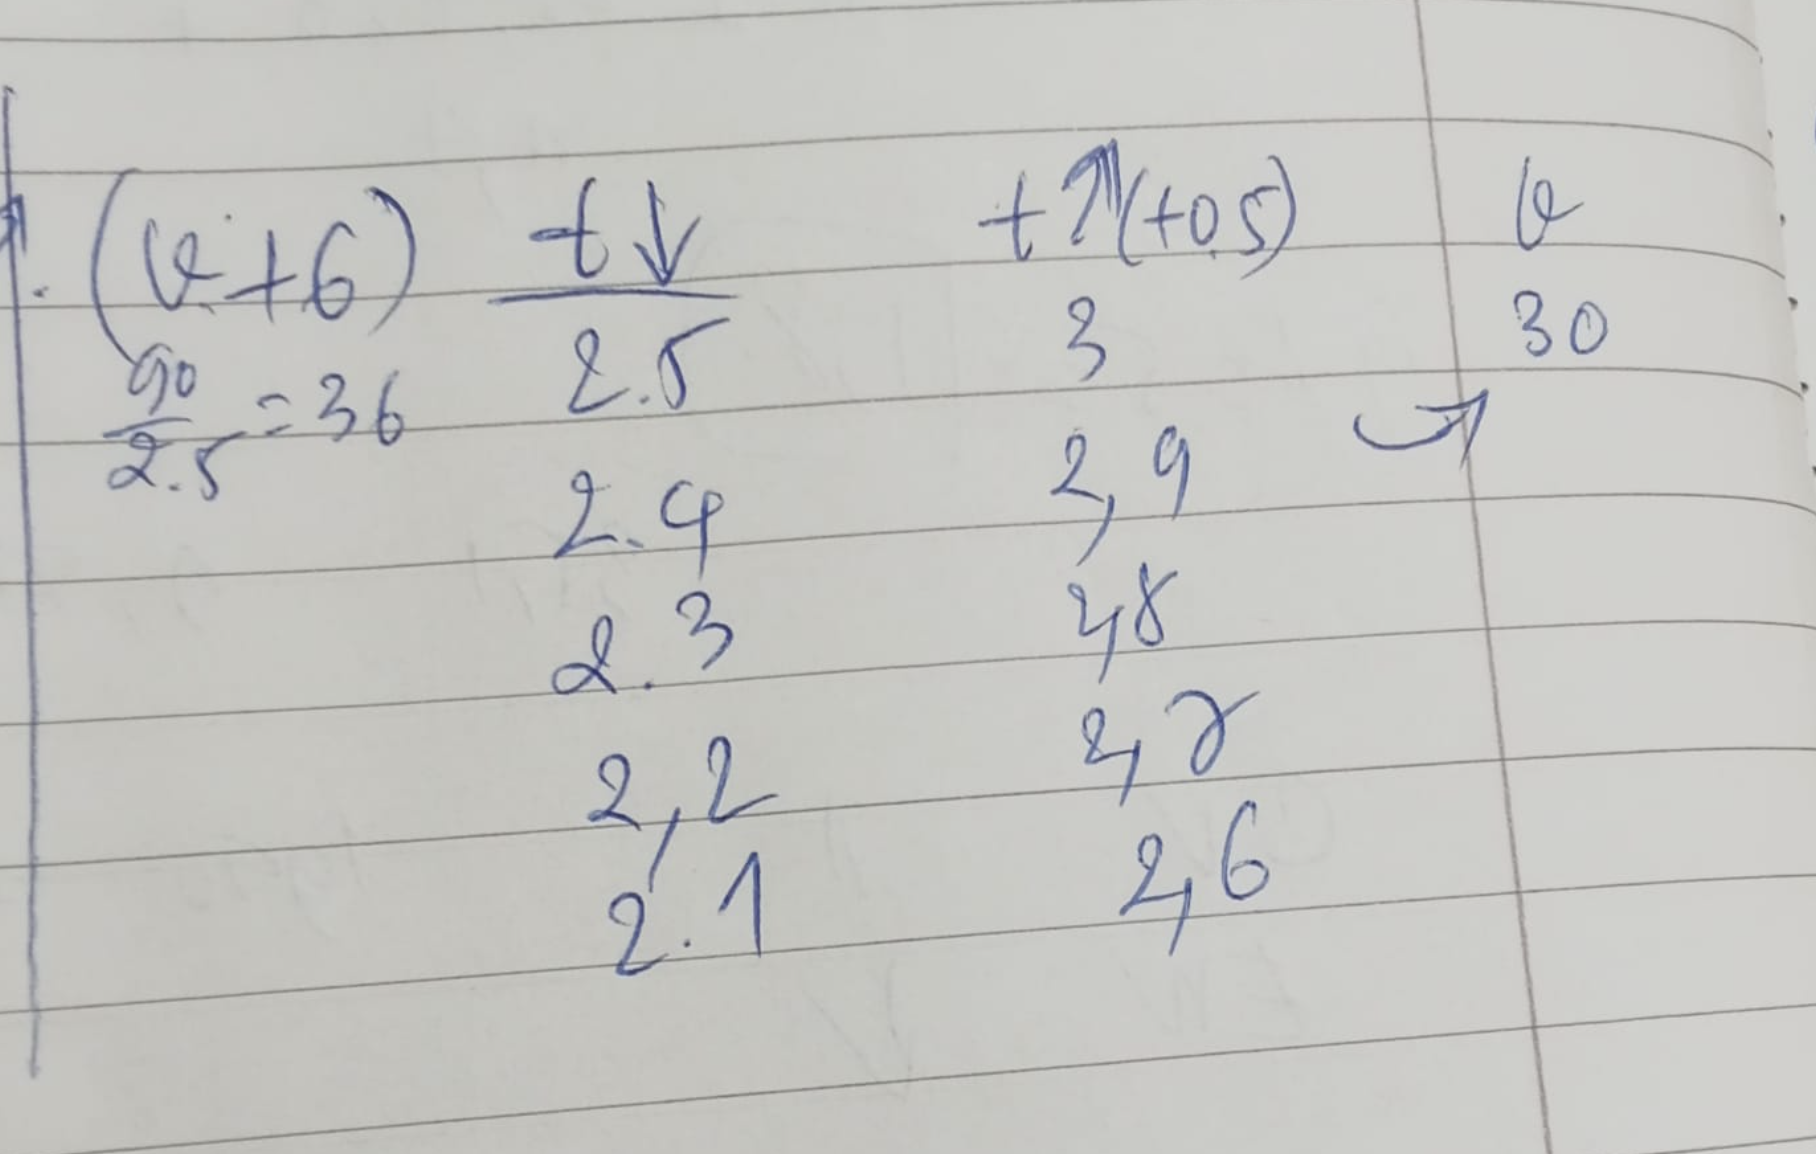 (v+6) t↓ t↑(+0.5) v
90/2.5 = 36 2.5 3 30
2.4 2,9
2.3 2,8
2,2 2,7
2.1 2,6